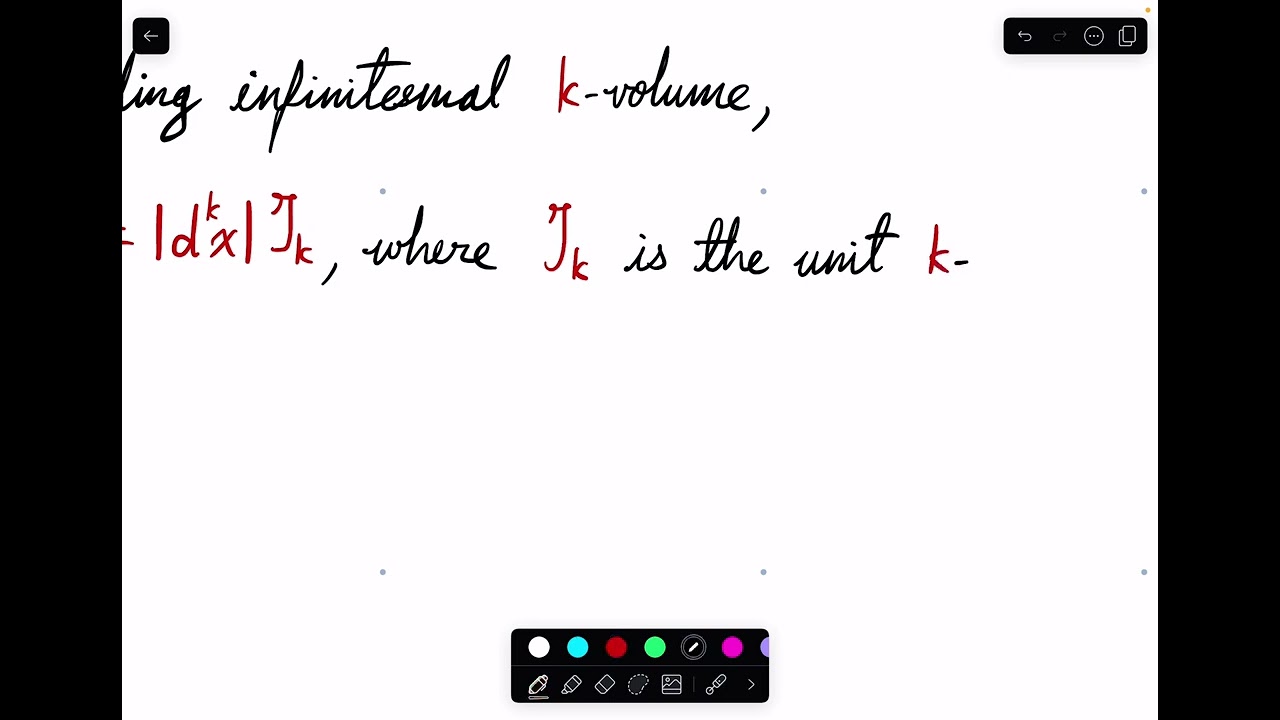 ling infinitesmal k-volume,
= |dᵏx| ℐₖ, where ℐₖ is the unit k-